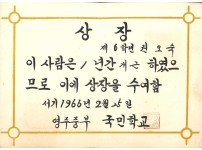 상장
제6학년 권오숙
이 사람은 1년간 개근 하였으
므로 이에 상장을 수여함
서기 1966년 2월 15일
영주중부 국민학교